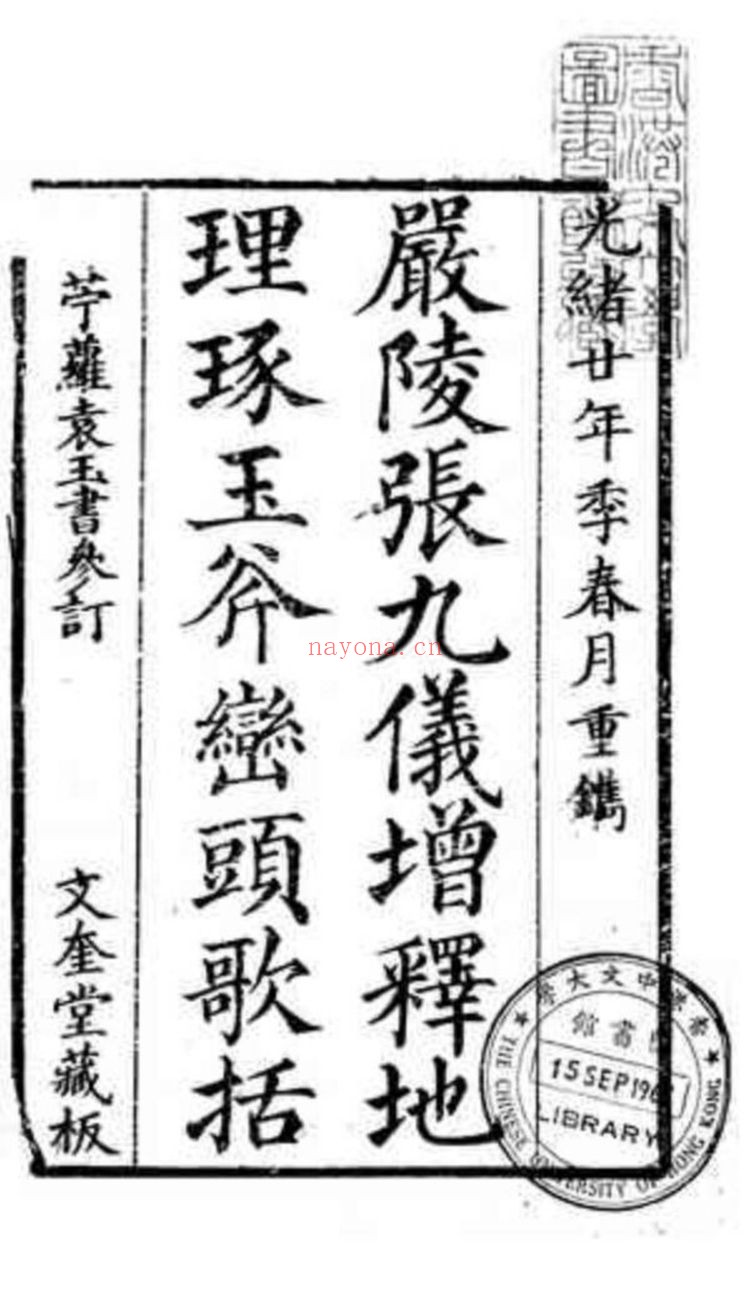 光緒廿年季春月重鐫
嚴陵張九儀增釋地
理琢玉斧巒頭歌括
苧蘿袁玉書參訂
文奎堂藏板
nayona.cn
香港中文大學
圖書館
15 SEP 196
LIBRARY
THE CHINESE UNIVERSITY OF HONG KONG